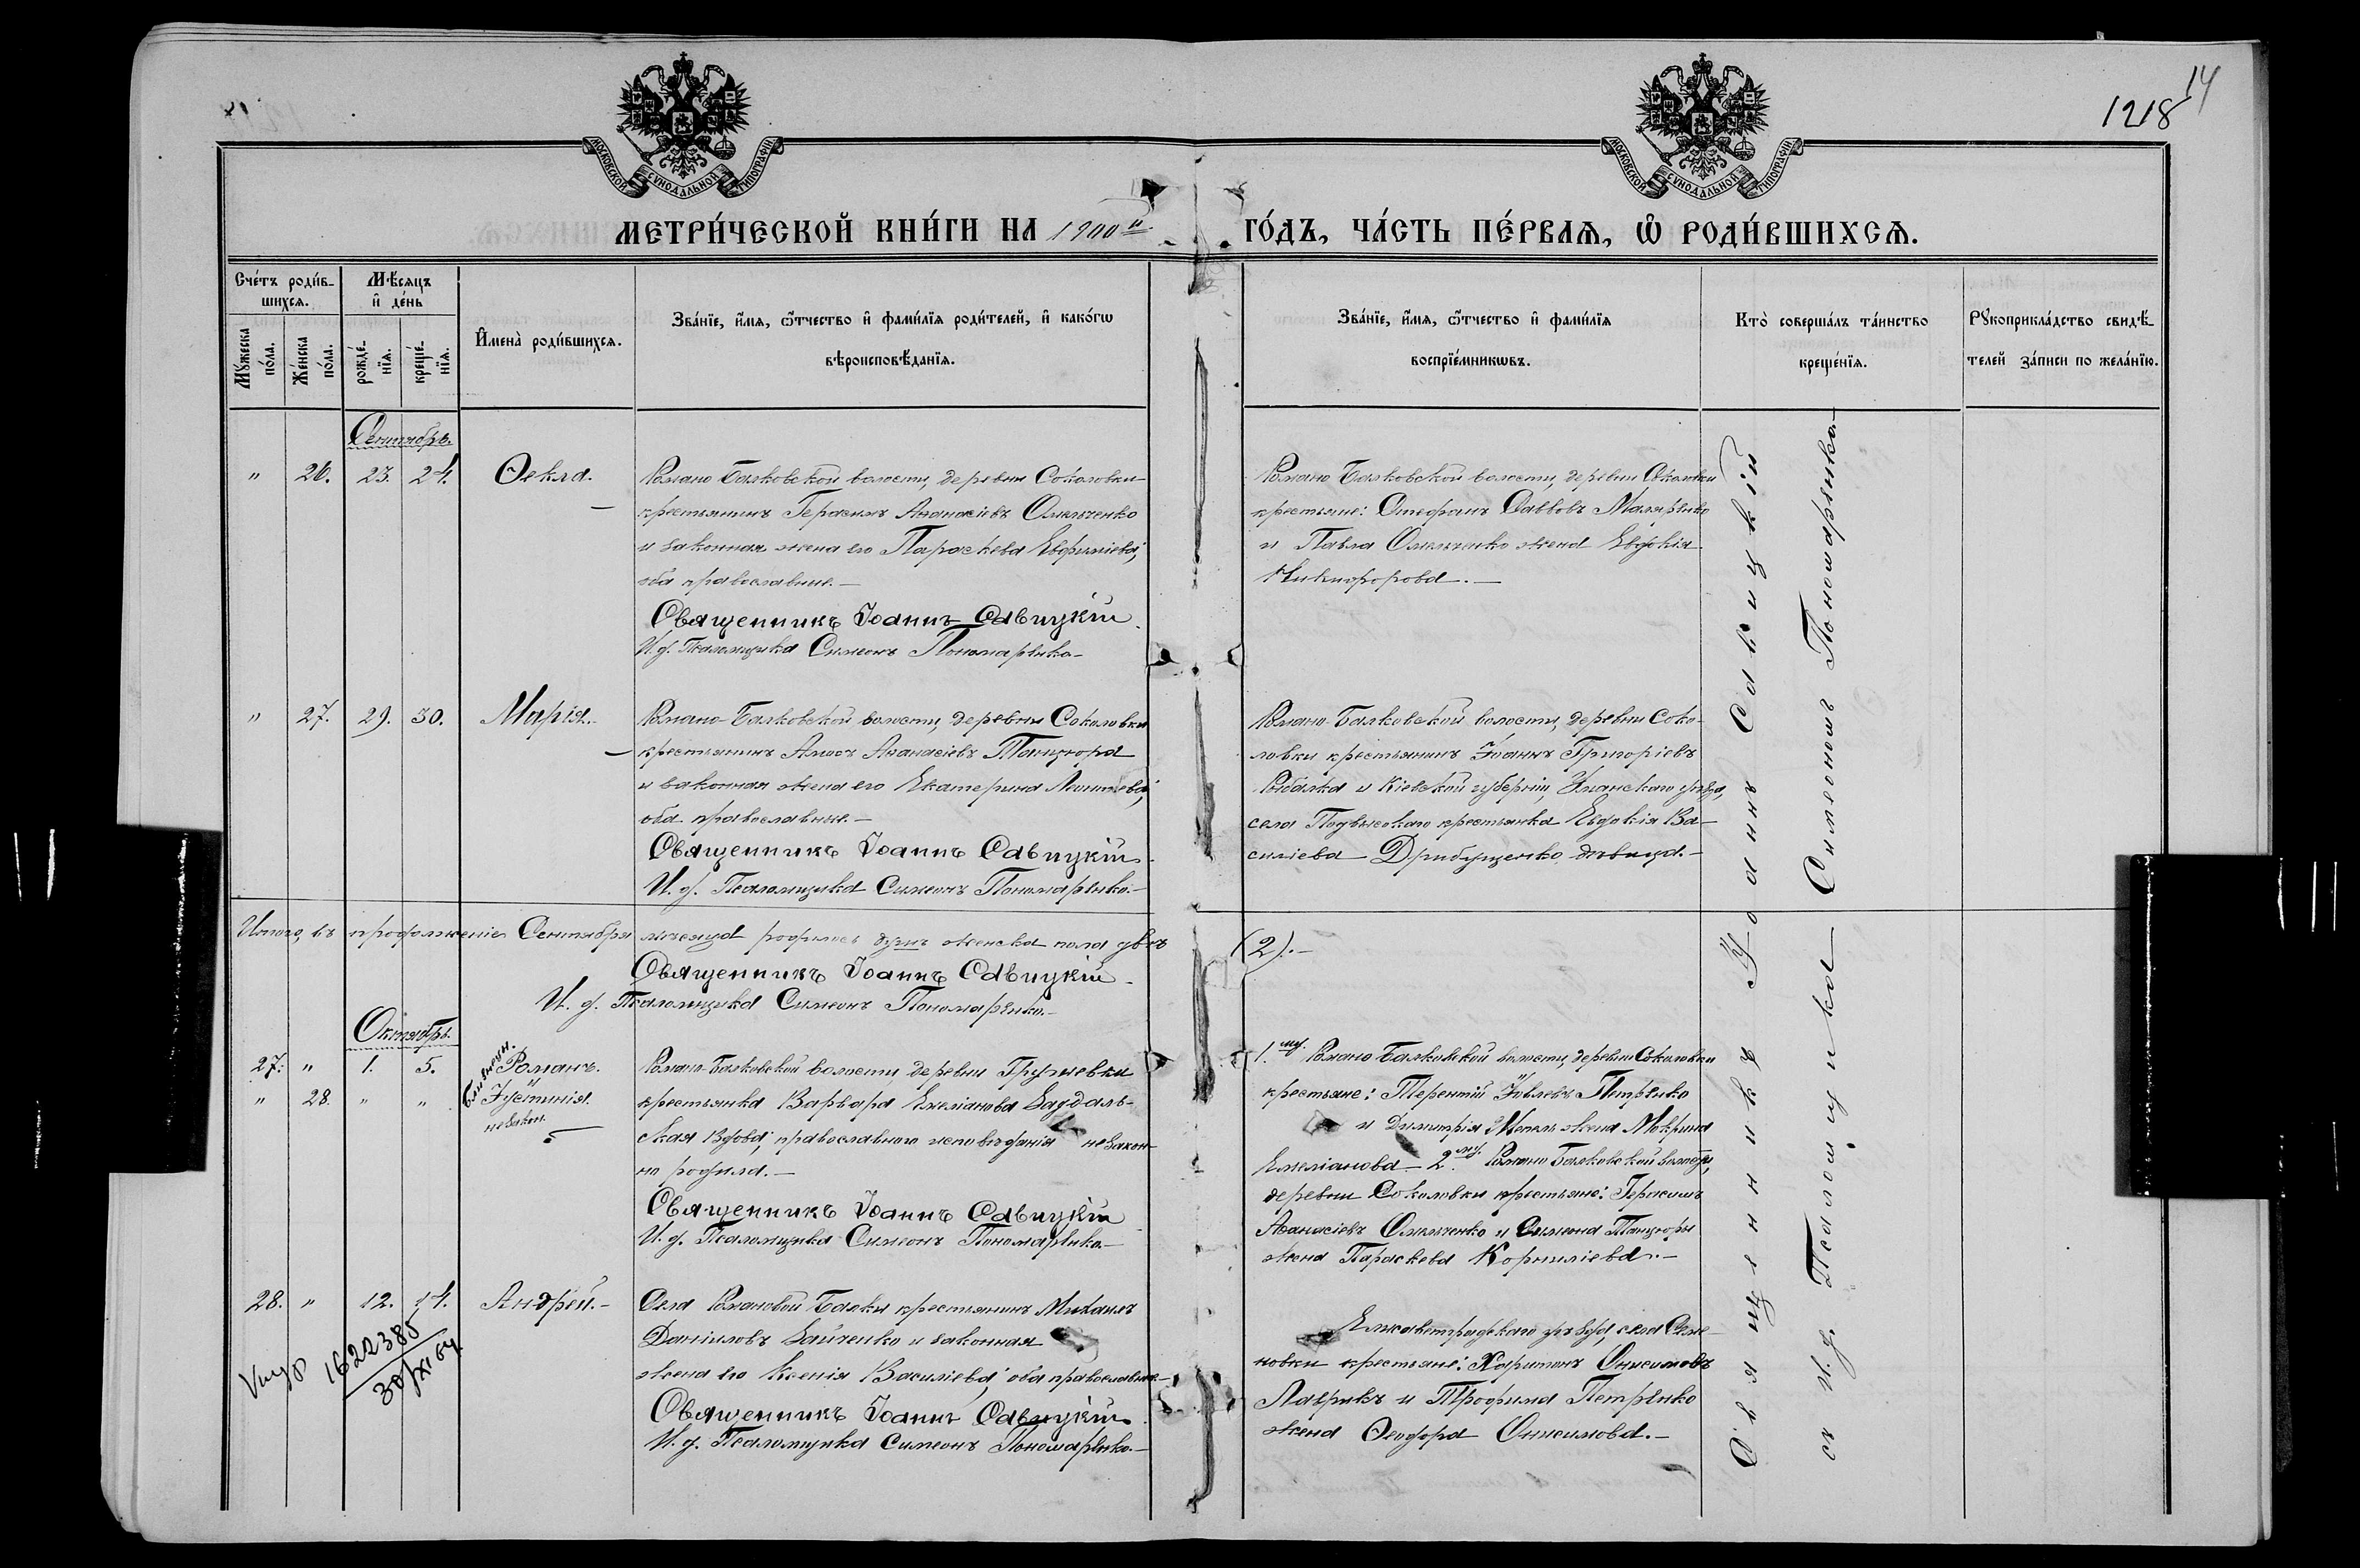 14
1218
МОСКОВСКОЙ СѴНОДАЛЬНОЙ ТИПОГРАФІИ
МОСКОВСКОЙ СѴНОДАЛЬНОЙ ТИПОГРАФІИ
МЕТРИ́ЧЕСКОЙ КНИ́ГИ НА 1900й ГО́ДЪ, ЧА́СТЬ ПЕ́РВАѦ, Ѽ РОДИ́ВШИХСѦ.
Сче́тъ роди́в-
шихсѧ.
Мꙋ́жеска по́ла.
Же́нска по́ла.
Мѣ́сѧцъ
и҆ де́нь
рожде́-нїѧ.
креще́-нїѧ.
И҆мена̀ роди́вшихсѧ.
Зва́нїе, и҆́мѧ, ѻ҆́тчество и҆ фами́лїѧ роди́телей, и҆ како́гѡ
вѣроисповѣ́данїѧ.
Зва́нїе, и҆́мѧ, ѻ҆́тчество и҆ фами́лїѧ
воспрїе́мникѡвъ.
Кто̀ соверша́лъ та́инство
креще́нїѧ.
Рꙋкоприкла́дство свидѣ́-
телей за́писи по жела́нїю.
Сентябрь.
" 26. 23. 24. Ѳекла.
Романо Балковской волости, деревни Соколовки
крестьянинъ Герасимъ Аѳанасіевъ Омельченко
и законная жена его Параскева Евфиміева,
оба православные.—
Священникъ Іоаннъ Савицкій
И. д. Псаломщика Симеонъ Пономаренко
Романо Балковской волости, деревни Соколовки
крестьяне: Стефанъ Савовъ Маляренко
и Павла Омельченко жена Евдокія
Никифорова.—
" 27. 29. 30. Марія.
Романо-Балковской волости, деревни Соколовки
крестьянинъ Амосъ Аѳанасіевъ Танцюра
и законная жена его Екатерина Леонтіева,
оба православные.—
Священникъ Іоаннъ Савицкій
И. д. Псаломщика Симеонъ Пономаренко.—
Романо-Балковской волости, деревни Соко-
ловки крестьянинъ Іоаннъ Григоріевъ
Рыбалка и Кіевской губерніи, Уманскаго уѣзда,
села Подвысокаго крестьянка Евдокія Ва-
силіева Дрибущенко девица.—
Итого, въ продолженіе Сентября мѣсяца родилось душъ женска пола двѣ (2).—
Священникъ Іоаннъ Савицкій
И. д. Псаломщика Симеонъ Пономаренко.—
Октябрь.
27. " 1. 5. Романъ.
" 28. " " Іустинія.
близнецы.
незакон.
Романо-Балковской волости, деревни Грузневки
крестьянка Варвара Емеліанова
ская вдова, православнаго исповѣданія незакон-
но родила.—
Священникъ Іоаннъ Савицкій
И. д. Псаломщика Симеонъ Пономаренко.—
1.му Романо Балковской волости, деревни Соколовки
крестьяне: Терентій Іовлевъ Петренко
и Димитрія жена Макрина
Емеліанова 2.му Романо Балковской волости,
деревни Соколовки крестьяне: Герасимъ
Аѳанасіевъ Омельченко и Симеона Танцюры
жена Параскева Корниліева.—
28. " 12. 14. Андрей.—
Села Романовой Балки крестьянинъ Михаилъ
Даніиловъ Зайченко и законная
жена его Ксенія Василіева, оба православные.—
Священникъ Іоаннъ Савицкій
И. д. Псаломщика Симеонъ Пономаренко.—
Елисаветградскаго уѣзда, села Семе-
новки крестьяне: Харитонъ Онисимовъ
Лаврикъ и Трофима Петренко
жена Ѳеодора Онисимова.—
1622385
30/XI
Священникъ Іоаннъ Савицкій
съ и. д. Псаломщика Симеономъ Пономаренко.—